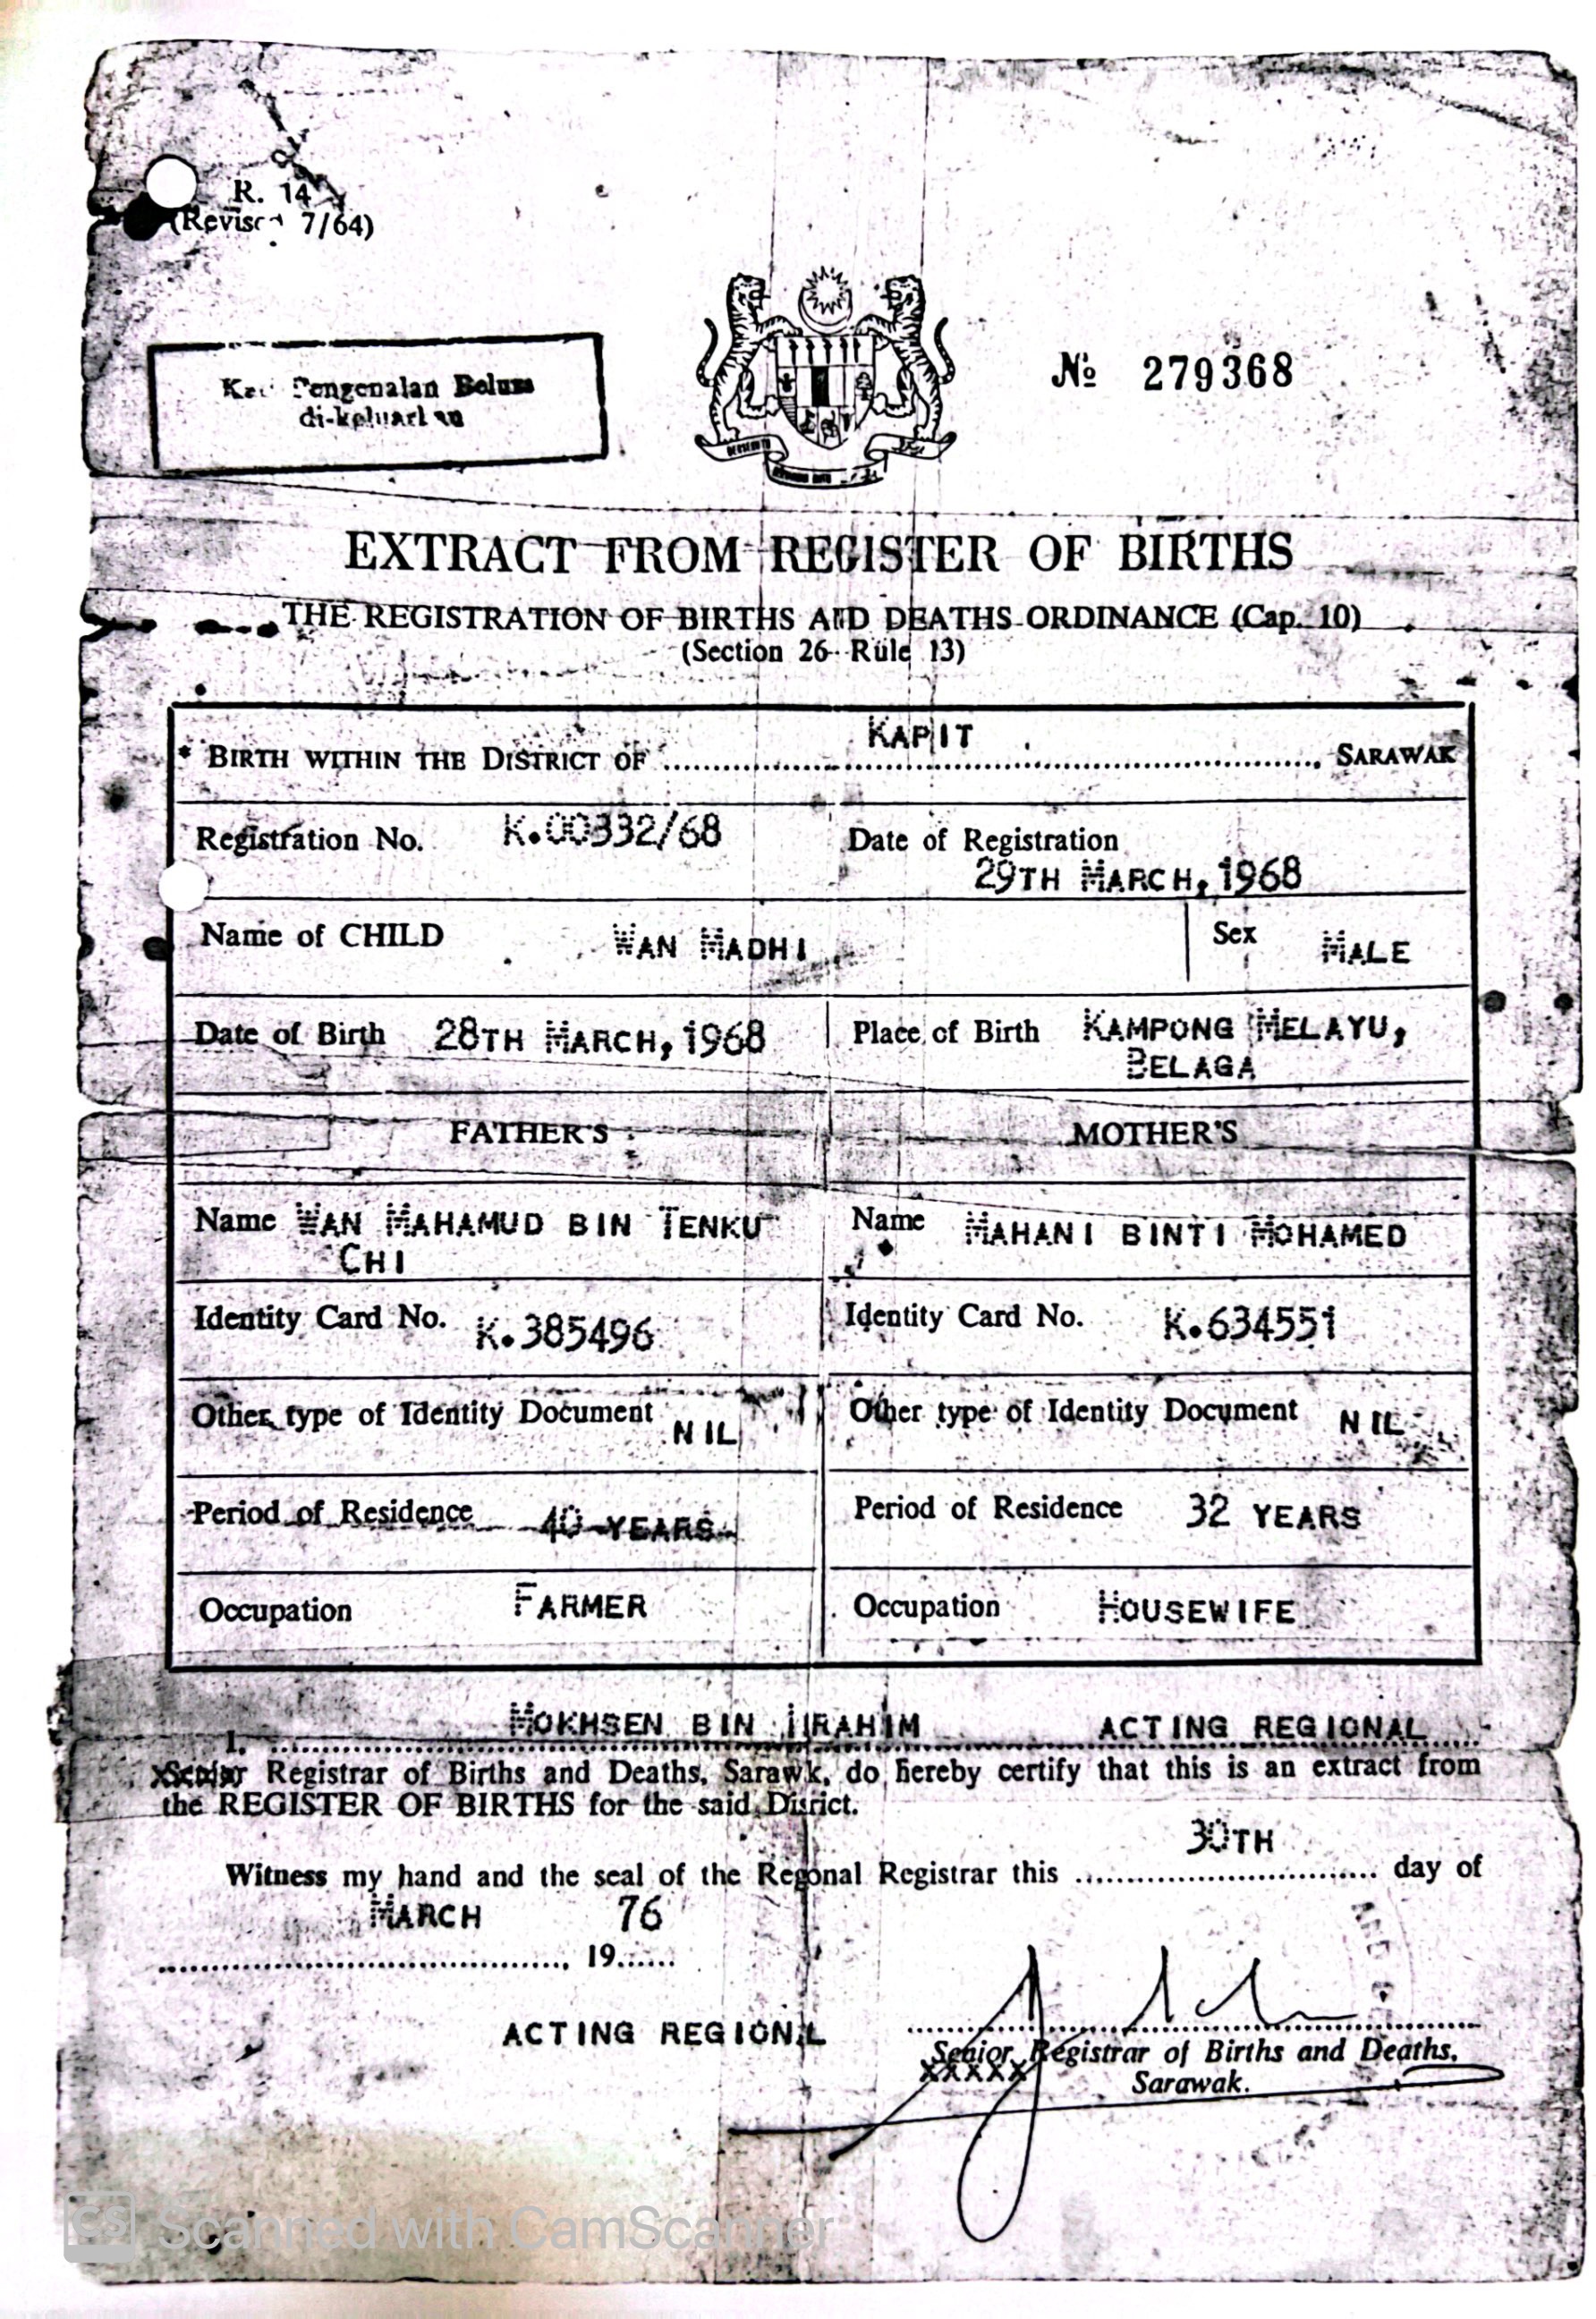 R. 14
(Revised 7/64)
Pengenalan Belum
di-keluarkan
№ 279368
EXTRACT FROM REGISTER OF BIRTHS
THE REGISTRATION OF BIRTHS AND DEATHS ORDINANCE (Cap. 10)
(Section 26 Rule 13)
* BIRTH WITHIN THE DISTRICT OF KAPIT, SARAWAK
Registration No. K.00332/68 Date of Registration
29TH MARCH, 1968
Name of CHILD WAN MADHI Sex MALE
Date of Birth 28TH MARCH, 1968 Place of Birth KAMPONG MELAYU,
BELAGA
FATHER'S MOTHER'S
Name WAN MAHAMUD BIN TENKU Name MAHANI BINTI MOHAMED
CHI
Identity Card No. K.385496 Identity Card No. K.634551
Other type of Identity Document NIL Other type of Identity Document NIL
Period of Residence 40 YEARS Period of Residence 32 YEARS
Occupation FARMER Occupation HOUSEWIFE
I. MOKHSEN BIN IBRAHIM ACTING REGIONAL
Senior Registrar of Births and Deaths, Sarawk, do hereby certify that this is an extract from
the REGISTER OF BIRTHS for the said Disrict.
30TH
Witness my hand and the seal of the Regonal Registrar this .............................. day of
MARCH 76
........................................, 19......
ACTING REGIONAL
Senior Registrar of Births and Deaths,
xxxxx Sarawak.
CS Scanned with CamScanner